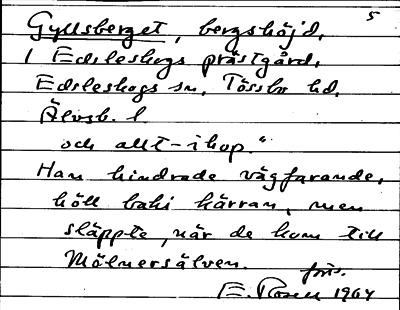 5
Gyllsberget, bergshöjd,
i Edsleskogs prästgård,
Edsleskogs sn, Tössbo hd,
Älvsb. l.
och allt-ihop."
Han hindrade vägfarande,
höll baki kärran, men
släppte, när de kom till
Mölnersälven.
förs.
E. Rosell 1964